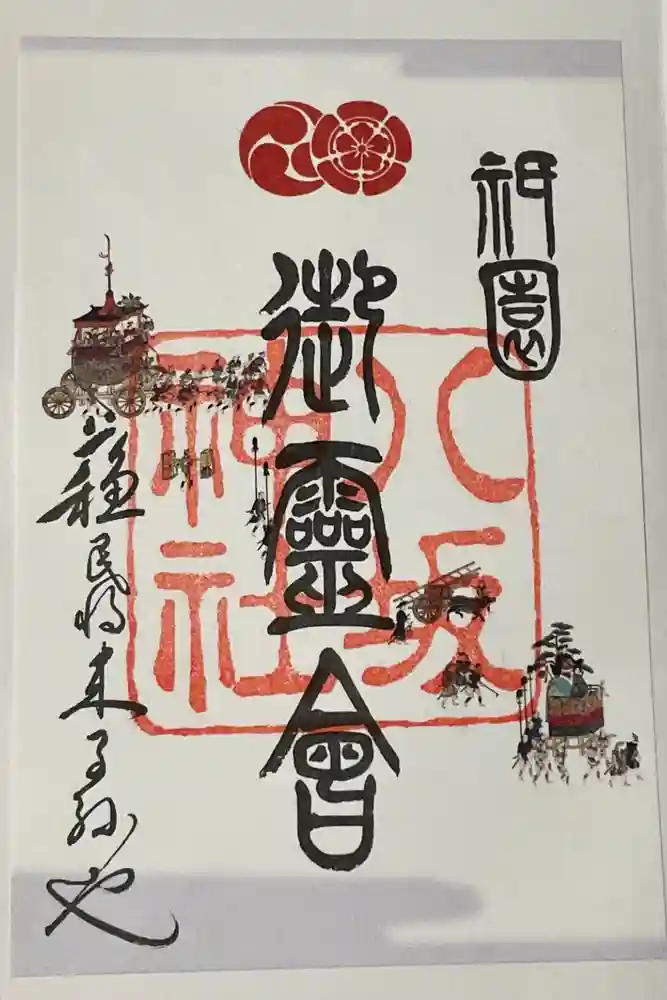 祇園
御靈會
八坂
神社
蘇民将来子孫也